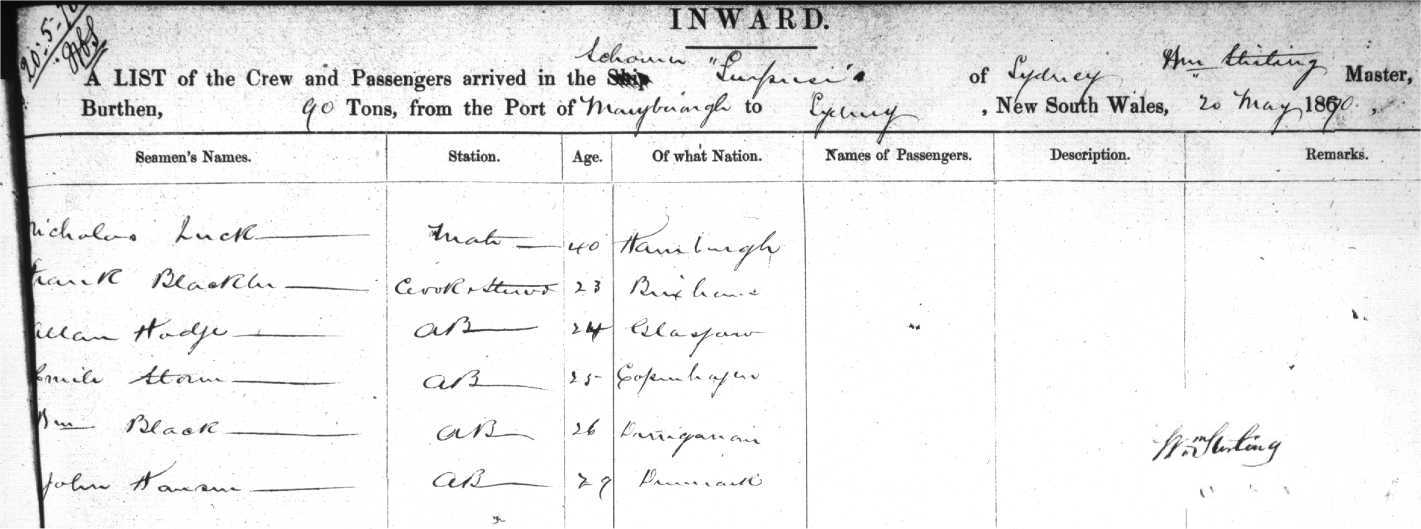 20.5.70
INWARD.
A LIST of the Crew and Passengers arrived in the Ship Schooner "Surprise" of Sydney Wm Stirling Master,
Burthen, 90 Tons, from the Port of Maryborough to Sydney, New South Wales, 20 May 1870.
Seamen's Names. Station. Age. Of what Nation. Names of Passengers. Description. Remarks.
Nicholas Luck Mate 40 Hamburgh
Frank Blackler Cook & Stewd 23 Brixham
Allan Hodge AB 24 Glasgow
Emile Storm AB 25 Copenhagen
Wm Black AB 26
Wm Stirling
John Hansen AB 29 Denmark